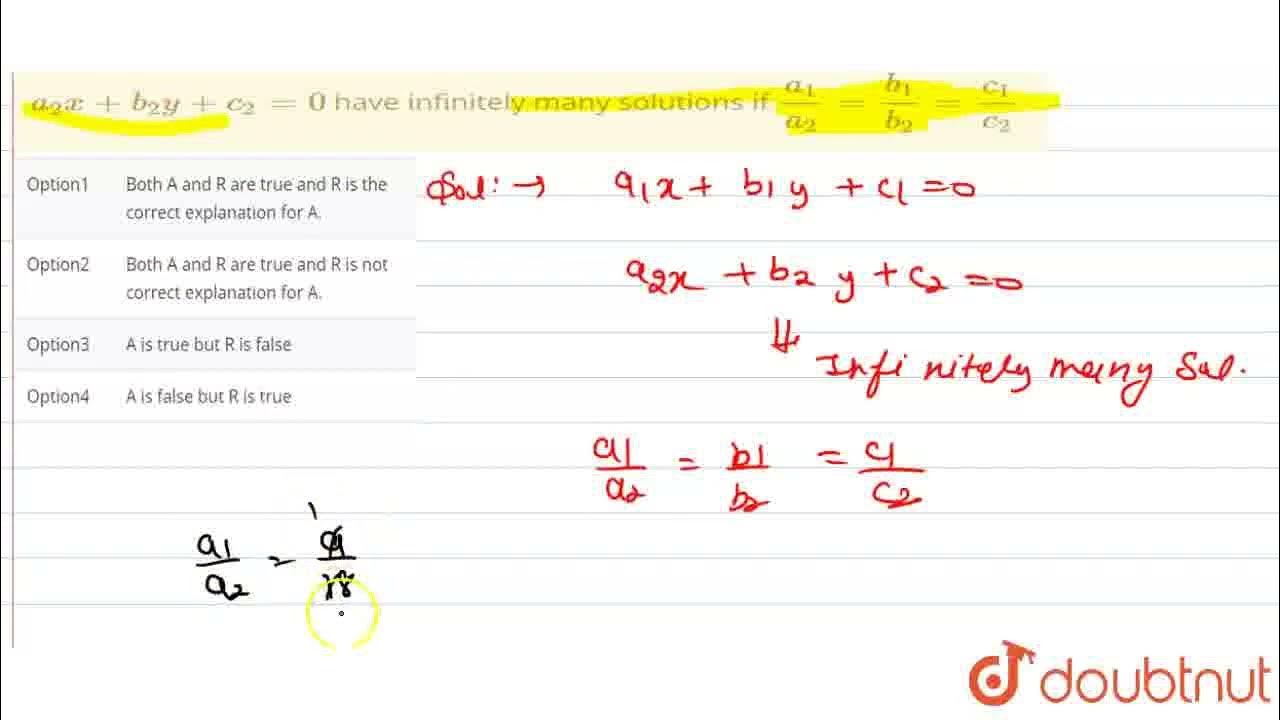 a₂x + b₂y + c₂ = 0 have infinitely many solutions if a₁/a₂ = b₁/b₂ = c₁/c₂
Option1 Both A and R are true and R is the
correct explanation for A.
Option2 Both A and R are true and R is not
correct explanation for A.
Option3 A is true but R is false
Option4 A is false but R is true
Sol: → a₁x + b₁y + c₁ = 0
a₂x + b₂y + c₂ = 0
⇓
Infinitely many Sol.
a₁/a₂ = b₁/b₂ = c₁/c₂
a₁/a₂ =
1
doubtnut